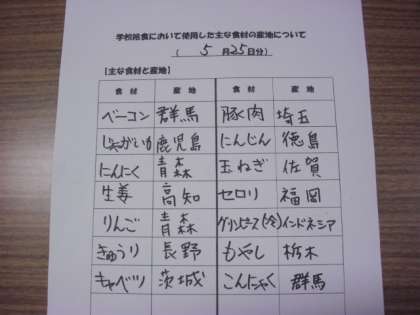 学校給食において使用した主な食材の産地について
( 5 月 25 日分)
【主な食材と産地】
食材 産地 食材 産地
ベーコン 群馬 豚肉 埼玉
じゃがいも 鹿児島 にんじん 徳島
にんにく 青森 玉ねぎ 佐賀
生姜 高知 セロリ 福岡
りんご 青森 グリンピース(冷) インドネシア
きゅうり 長野 もやし 栃木
キャベツ 茨城 こんにゃく 群馬